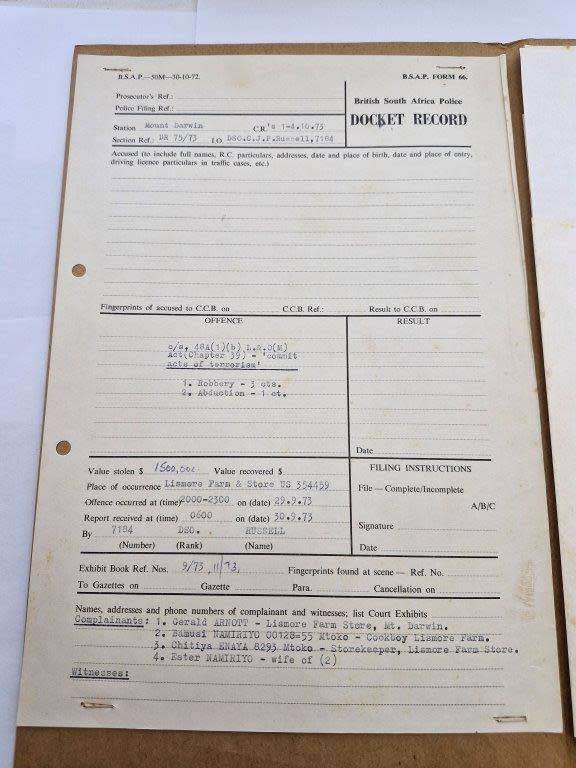 B.S.A.P.—50M—30-10-72.
B.S.A.P. FORM 66.
Prosecutor's Ref.:
Police Filing Ref.:
British South Africa Police
DOCKET RECORD
Station Mount Darwin C.R.'s 1-4.10.73
Section Ref.: DR 75/73 I.O. DSO.C.J.P.Russell,7184
Accused (to include full names, R.C. particulars, addresses, date and place of birth, date and place of entry,
driving licence particulars in traffic cases, etc.)
Fingerprints of accused to C.C.B. on C.C.B. Ref.: Result to C.C.B. on
OFFENCE
RESULT
c/s, 48A(1)(b) L.& O(M)
Act(Chapter 39) - 'commit
acts of terrorism'
1. Robbery - 3 cts.
2. Abduction - 1 ct.
Date
Value stolen $ Value recovered $
Place of occurrence Lismore Farm & Store US 354459
Offence occurred at (time) 2000-2300 on (date) 29.9.73
Report received at (time) 0600 on (date) 30.9.73
By 7184 DSO. RUSSELL
(Number) (Rank) (Name)
FILING INSTRUCTIONS
File — Complete/Incomplete
A/B/C
Signature
Date
Exhibit Book Ref. Nos. 9/73, 11/73, Fingerprints found at scene — Ref. No.
To Gazettes on Gazette Para. Cancellation on
Names, addresses and phone numbers of complainant and witnesses; list Court Exhibits
Complainants: 1. Gerald ARNOTT - Lismore Farm Store, Mt. Darwin.
2. Bamusi NAMIRIYO 00128=55 Mtoko - Cookboy Lismore Farm.
3. Chitiya ENAYA 8293 Mtoko - Storekeeper, Lismore Farm Store.
4. Ester NAMIRIYO - wife of (2)
Witnesses: